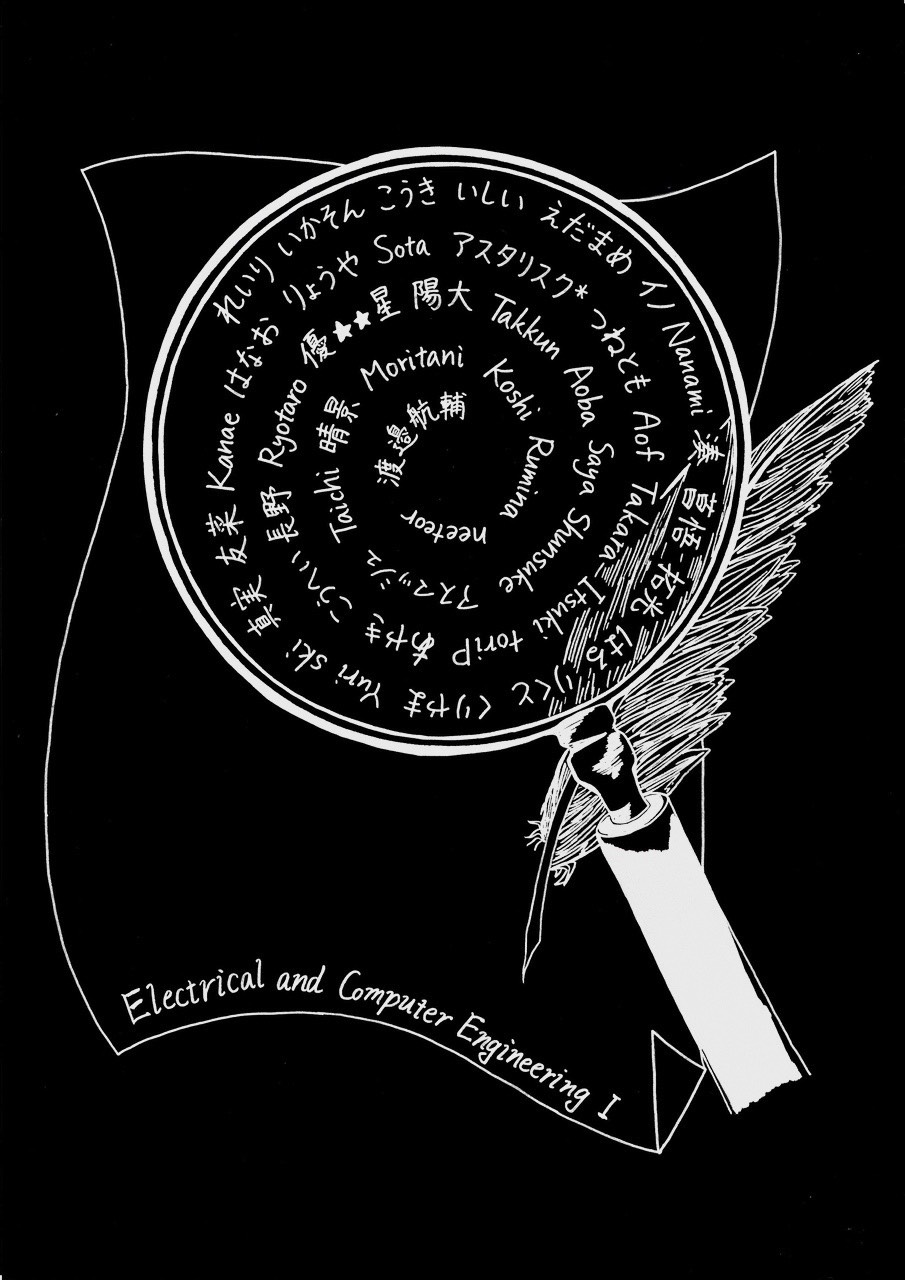 れいり いかそん こうき いしい えだまめ イノ Nanami 湊 拓光 はる りくと くりやま Yuri ski 真実 友菜 Kanae
はなお りょうや Sota アスタリスク* つねとも Aof Takara Itsuki toriP あやき こうへい 長野 Ryotaro
優★★星 陽大 Takkun Aoba Saya Shunsuke アスマッシュ Taichi 晴景
Moritani Koshi Rumina neeteor
渡邉航輔
Electrical and Computer Engineering I